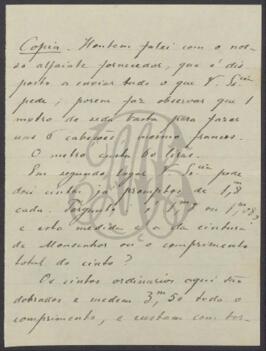 Copia. Hontem falei com o nos-
so alfaiate fornecedor, que é dis
posto a enviar tudo o que V. Sª
pede; porem faz observar que 1
metro de seda basta para fazer
uns 6 cabeções mesmo francos.
O metro custa 60 liras.
Em segundo logar V. Sª pede
dois cintos já promptos de 1,8
cada. Pergunta
e esta medida é a da cintura
de Monsenhor ou o comprimento
total do cinto?
Os cintos ordinarios aqui são
dobrados e medem 3,m 50 todo o
comprimento, e custam com bor-